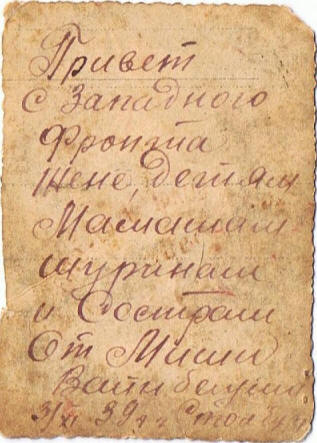 Привет
с Западного
Фронта
Жене, детям
Мамашам
шуринам
и Сострам
От Миши
Вайн
39 г. г. Столбцы